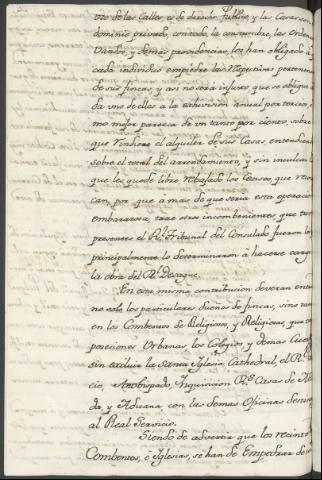 uso de las Calles es de derecho publico, y las Casas son
dominio privado, con todo, la costumbre, las Ordenan
Vandos, y demas providencias, los han obligado à
cada individuo empiedre las respectivas pertenen
de sus fincas, y asi no sera injusto, que se obligue
da uno de ellos a la exivision anual por tercios,
mo mejor paresca de un tanto por ciento, sobre
que rindiere el alquiler de sus Casas, entendien
sobre el total del arrendamiento, y sin inculcar l
que les quede libre rebajado los Censos, que reco
can, por que a mas de que seria esta operacion
embarazosa, trae otros inconbenientes que tu
presentes el Rl. Tribunal del Consulado fueron lo
principalmente lo determinaron à hacerse cargo
la obra del Rl. Desague.
En esta misma contribucion deveran entra
no solo los particulares Dueños de fincas, sino tam
en los Combentos de Religiosos, y Religiosas, que
posesiones Urbanas los Colegios, y demas Cuerp
sin excluir la Santa Iglesia Cathedral, el Rl.
cio, Arzobispado, Inquisicion Rs. Casas de Mo
da, y Aduana, con las demas Oficinas
al Real Servicio.
Siendo de advertir que los recint
Combentos, è Iglesias, se han de Empedrar de